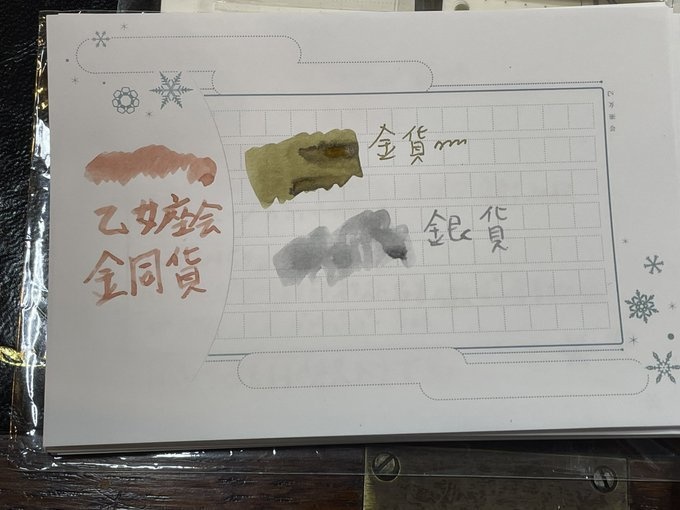 乙女座会
銅貨
金貨
銀貨
乙女座会